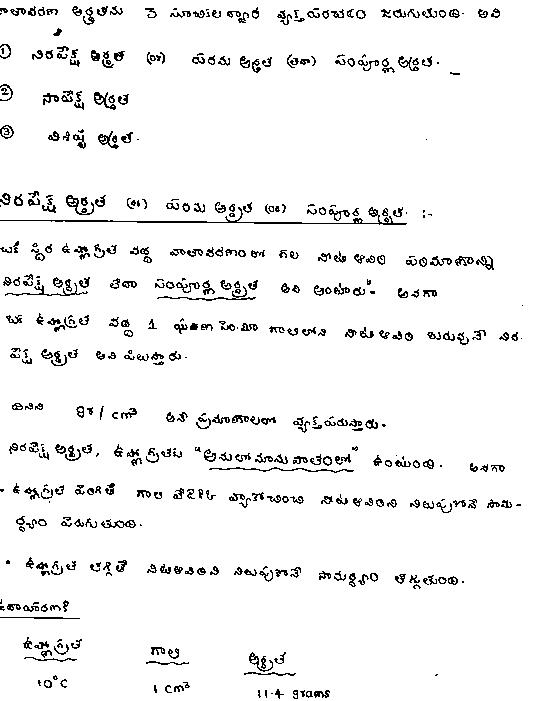 వాతావరణ ఆర్ద్రతను 3 సూచికల ద్వారా వ్యక్తపరచడం జరుగుతుంది. అవి
① నిరపేక్ష ఆర్ద్రత (or) పరమ ఆర్ద్రత (లేదా) సంపూర్ణ ఆర్ద్రత.
② సాపేక్ష ఆర్ద్రత
③ విశిష్ట ఆర్ద్రత.
నిరపేక్ష ఆర్ద్రత (or) పరమ ఆర్ద్రత (or) సంపూర్ణ ఆర్ద్రత :-
ఒక స్థిర ఉష్ణోగ్రత వద్ద వాతావరణంలో గల నీటి ఆవిరి పరిమాణాన్ని
నిరపేక్ష ఆర్ద్రత లేదా సంపూర్ణ ఆర్ద్రత అని అంటారు. అనగా
ఒక ఉష్ణోగ్రత వద్ద 1 ఘనపు సెం.మీ గాలిలోని నీటి ఆవిరి బరువునే నిర
పేక్ష ఆర్ద్రత అని పిలుస్తారు.
దీనిని gr/cm³ అనే ప్రమాణాలలో వ్యక్తపరుస్తారు.
నిరపేక్ష ఆర్ద్రత, ఉష్ణోగ్రతకు "అనులోమానుపాతంలో" ఉంటుంది. అనగా
- ఉష్ణోగ్రత పెరిగితే గాలి వేడెక్కి వ్యాకోచించి నీటి ఆవిరిని నిలుపుకొనే సామ-
ర్థ్యం పెరుగుతుంది.
• ఉష్ణోగ్రత తగ్గితే నీటిఆవిరిని నిలుపుకొనే సామర్థ్యం తగ్గుతుంది.
ఉదాహరణకి
ఉష్ణోగ్రత గాలి ఆర్ద్రత
10°C 1 cm³ 11.4 grams